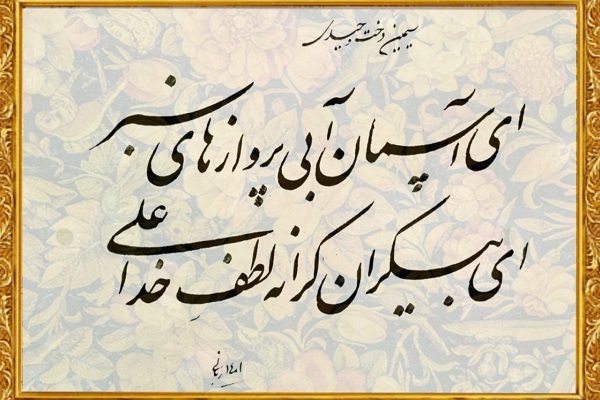 سیمین دخت وحیدی
ای آسمان آبی پروازهای سبز
ای بیکران کرانه لطف خدا علی